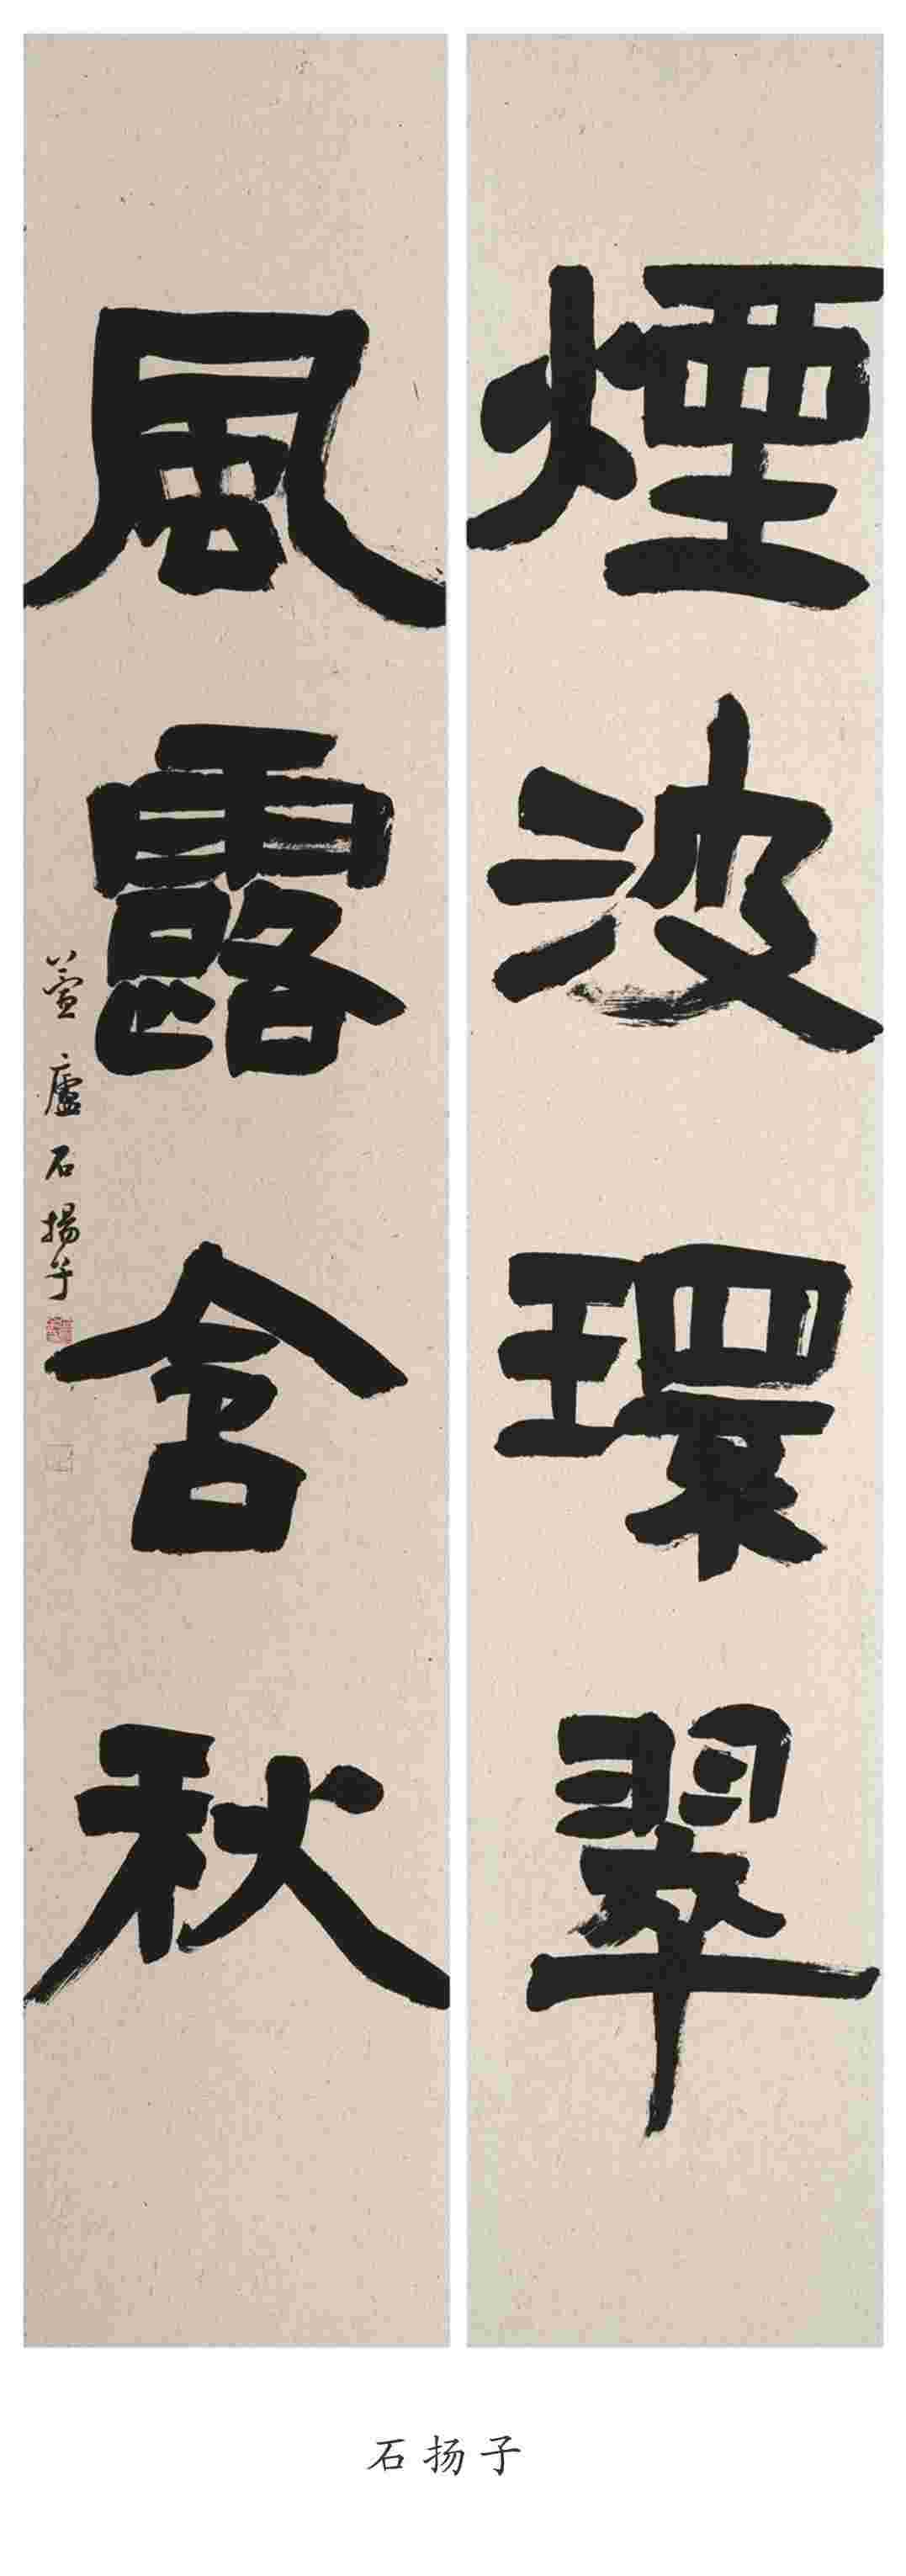 煙波環翠
風露含秋
萱廬石揚子
石扬子